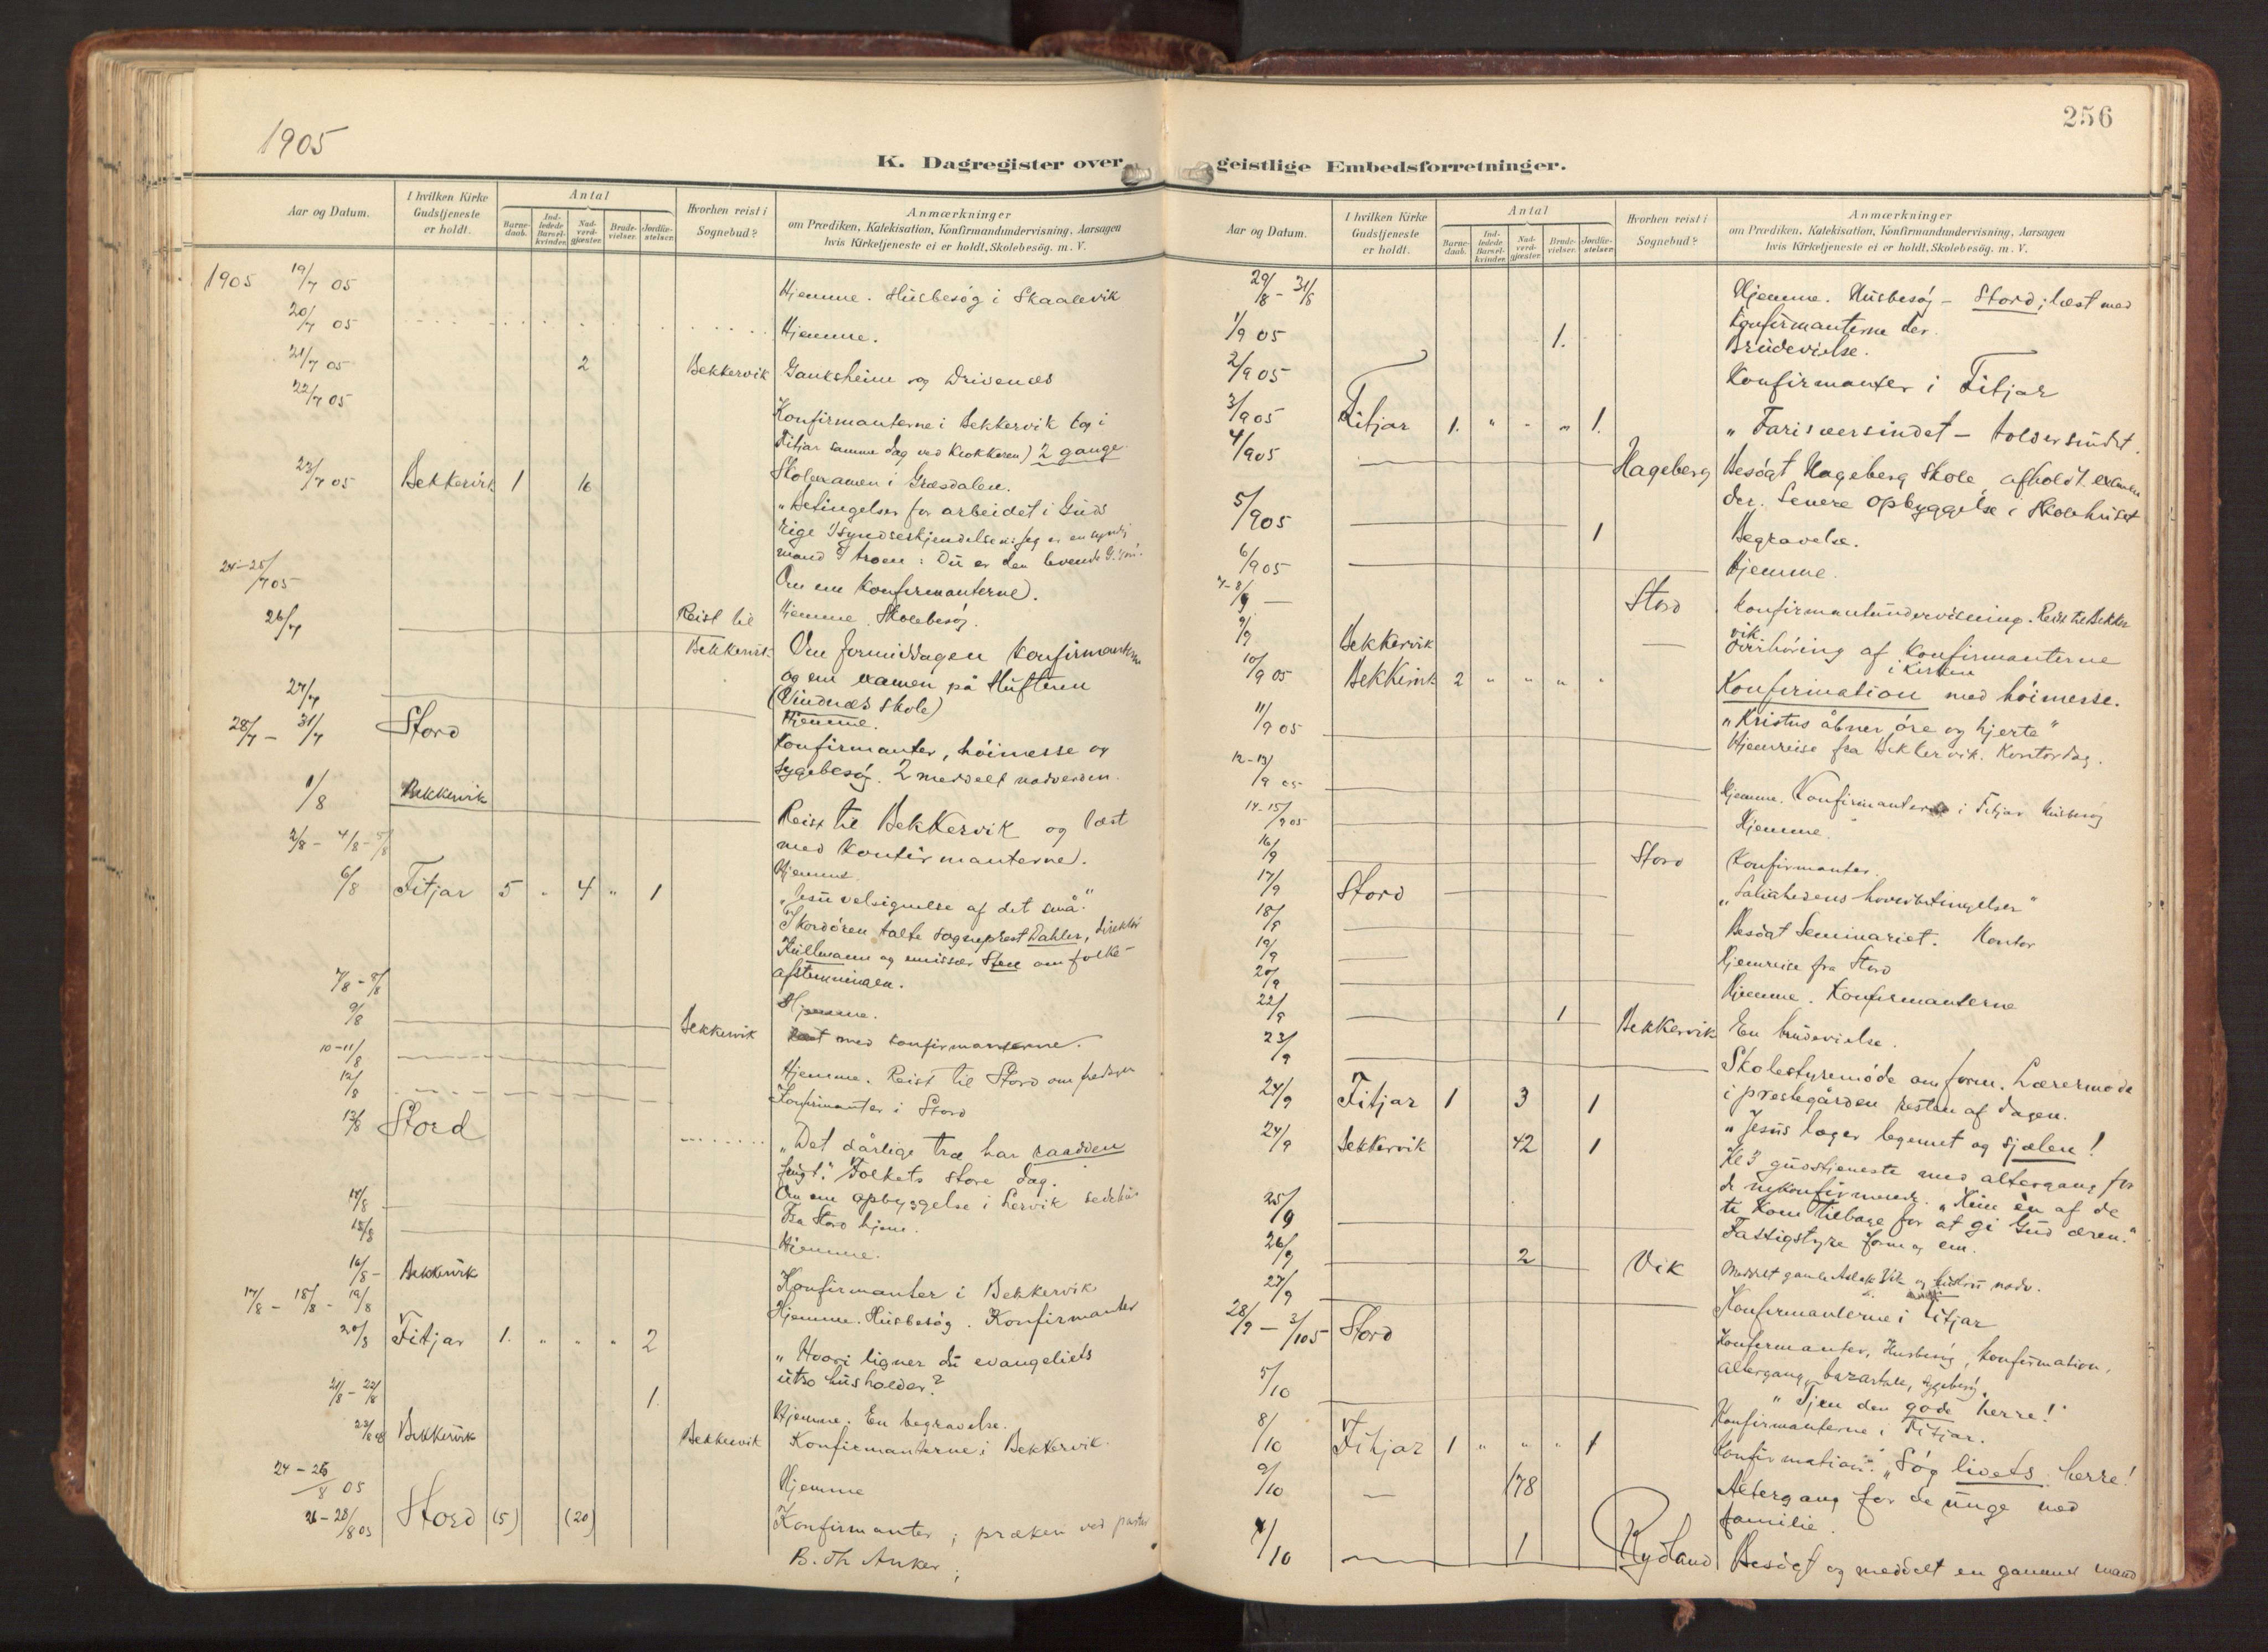 1905
K. Dagregister over
Aar og Datum.
I hvilken Kirke Gudstjeneste er holdt.
Antal
Barne-daab.
Ind-ledede Barsel-kvinder.
Nad-verd-gjæster.
Brude-vielser.
Jordfæ-stelser.
Hvorhen reist i Sognebud?
Anmærkninger
om Prædiken, Katekisation, Konfirmandundervisning, Aarsagen
hvis Kirketjeneste ei er holdt, Skolebesög. m. V.
1905 19/7 05 Hjemme. Husbesøg i Skaalevik
20/7 05 Hjemme.
21/7 05 2 Bekkervik Gauksheim og Drivenes
22/7 05
Konfirmanterne i Bekkervik (og i
Fitjar samme dag ved klokkeren) 2 gange.
Skoleexamen i Græsdalen.
23/7 05 Bekkervik 1 16
"Betingelser for arbeidet i Guds
rige syndserkjendelsen: jeg er en syndig
mand troen: Du er den levende G. sön".
24-25/7 05 Om em konfirmanterne).
Hjemme. Skolebesøg.
26/7 Reist til Bekkervik Om formiddagen konfirmanterne
og em examen på Hufteren
(Vindnæs skole)
27/7 Hjemme.
28/7 - 31/7 Stord Konfirmanter, höimesse og
sygebesög. 2 meddelt nadverden.
1/8 Bekkervik Reist til Bekkervik og læst
med konfirmanterne).
2/8 - 4/8 - 5/8 Hjemme.
6/8 Fitjar 5 " 4 " 1 "Jesu velsignelse af det små."
I Skordören talte sogneprest Dahler, direktör
Kullmann og emissær Steen om folke-
afstemningen.
7/8 - 8/8 Hjemme.
9/8 Bekkervik Læst med konfirmanterne.
10-11/8 Hjemme. Reist til Stord om fredagen
12/8 Konfirmanter i Stord
13/8 Stord "Det dårlige træ har raadden
frugt." Folkets store dag.
Om em opbyggelse i Lervik bedehus
14/8 Fra Stord hjem.
15/8 Hjemme.
16/8 - Bekkervik Konfirmanter i Bekkervik
17/8 - 18/8 - 19/8 Hjemme. Husbesøg. Konfirmanter
20/8 Fitjar 1. " " " 2 "Hvori ligner du evangeliets
utro husholder?
21/8 - 22/8 1. Hjemme. En begravelse.
23/8 Bekkervik Bekkervik Konfirmanterne i Bekkervik.
24-26/8 05 Hjemme
26-28/8 05 Stord (5) (20) Konfirmanter; præken ved pastor
B. Th Anker;
256
geistlige Embedsforretninger.
Aar og Datum.
I hvilken Kirke Gudstjeneste er holdt.
Antal
Barne-daab.
Ind-ledede Barsel-kvinder.
Nad-verd-gjæster.
Brude-vielser.
Jordfæ-stelser.
Hvorhen reist i Sognebud?
Anmærkninger
om Prædiken, Katekisation, Konfirmandundervisning, Aarsagen
hvis Kirketjeneste ei er holdt, Skolebesög. m. V.
29/8 - 31/8 Hjemme. Husbesøg - Stord; læst med
konfirmanterne der.
1/9 05 1. Brudevielse.
2/9 05 Konfirmanter i Fitjar
3/9 05 Fitjar 1. " " " 1. "Farisæersindet - toldersindet.
4/9 05 Hageberg Besögt Hageberg Skole afholdt examen
der. Senere opbyggelse i Skolehuset
5/9 05 1 Begravelse.
6/9 05 Hjemme.
7-8/9 Stord Konfirmantundervisning. Reist til Bekker
vik.
9/9 Bekkervik Overhöring af konfirmanterne
i kirken
10/9 05 Bekkervik 2 " " " " Konfirmation med höimesse.
"Kristus åbner öre og hjerte"
11/9 05 Hjemreise fra Bekkervik. Kontordag.
12-13/9 05 Hjemme. Konfirmanter i Fitjar Husbesøg
14-15/9 05 Hjemme.
16/9 Stord Konfirmanter.
17/9 Stord "Salighedens hovedbetingelser"
18/9 Besögt Seminariet. Kontor
19/9 Hjemreise fra Stord
20/9 Hjemme. Konfirmanterne
22/9 1 Bekkervik En brudevielse.
23/9 Skolestyremöde om form. Lærermöde
i prestegården resten af dagen.
24/9 Fitjar 1 3 1 "Jesus læger legemet og sjælen!
24/9 Bekkervik 42 1 Kl 3 gudstjeneste med altergang for
de nykonfirmerede. "Kun èn af de
ti kom tilbage for at gi Gud æren."
25/9 Fattigstyre form og em.
26/9 2 Vik Meddelt gamle Aslak Vik og hustru nadv.
27/9 Konfirmanterne i Fitjar
28/9 - 3/10 5 Stord Konfirmanter, Husbesøg, konfirmation,
altergang, bazartale, sygebesög.
"Tjen den gode herre!"
5/10 Konfirmanterne i Fitjar.
8/10 Fitjar 1 " " " 1 Konfirmation. "Søg livets herre!
9/10 — 178 Altergang for de unge med
familie.
/10 1 Rydland Besögt og meddelt en gammel mand